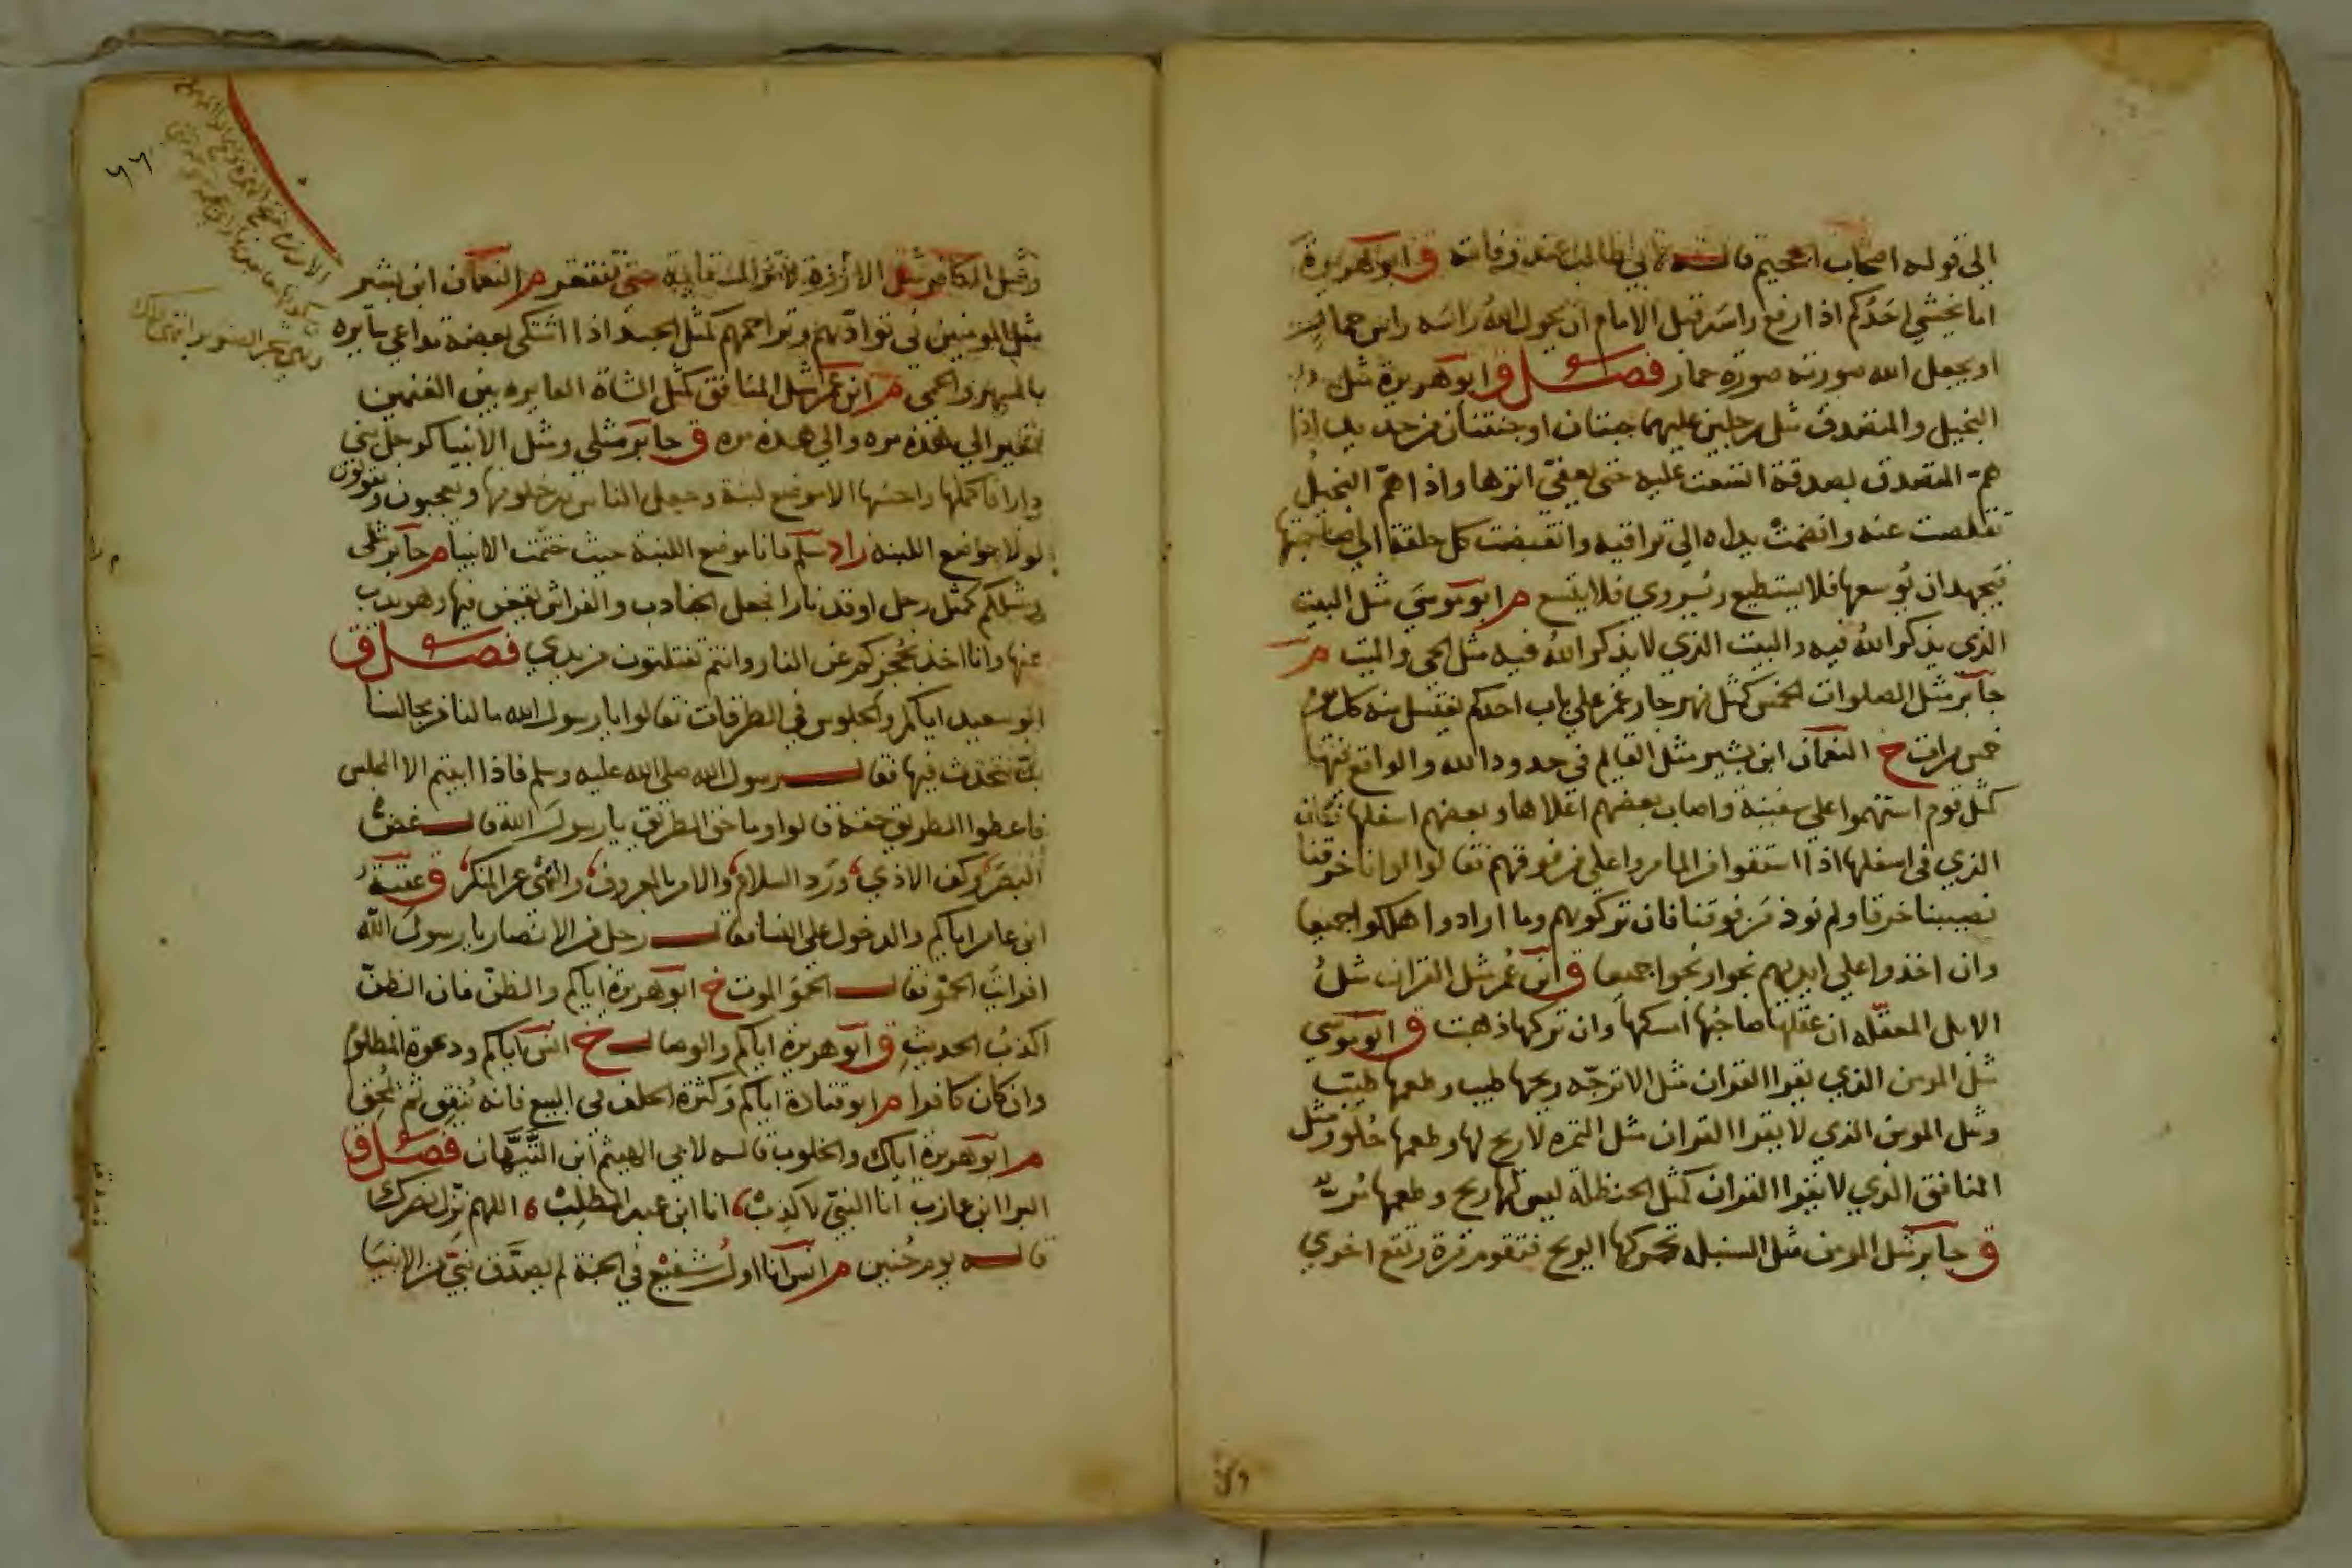 الي قوله اصحاب الجحيم قاله لابي طالب عند وفاته ق ابو هريرة
اما يخشي احدكم اذا رفع راسه قبل الامام ان يحول الله راسه راس حمار
او يجعل الله صورته صورة حمار فصل ق ابو هريرة مثل
البخيل والمتصدق مثل رجلين عليهما جبتان او جنتان من حديد اذا
همّ المتصدق بصدقة اتسعت عليه حتى يعفيّ اثرها واذا همّ البخيل
تقلصت عنه وانضمت يداه الي تراقيه وانقبضت كل حلقة الي صاحبتها
فيجهد ان يوسعها فلا يستطيع ويروي فلا يتسع م ابو موسي مثل البيت
الذي يذكر الله فيه والبيت الذي لا يذكر الله فيه مثل الحي والميت م
جابر مثل الصلوات الخمس كمثل نهر جار غمر علي باب احدكم يغتسل منه كل يوم
خمس مرات خ النعمان ابن بشير مثل القايم في حدود الله والواقع فيها
كمثل قوم استهموا علي سفينة واصاب بعضهم اعلاها وبعضهم اسفلها فكان
الذي في اسفلها اذا استقوا من الما مروا علي من فوقهم فقالوا لو انا خرقنا
نصيبنا خرقا ولم نوذ من فوقنا فان تركوهم وما ارادوا هلكوا جميعا
وان اخذوا علي ايديهم نجوا ونجوا جميعا ق ابن عمر مثل القران مثل
الابل المعقله ان عقلها صاحبها امسكها وان تركها ذهبت ق ابو موسي
مثل المومن الذي يقرا القران مثل الاترجّه ريحها طيب وطعمها طيب
ومثل المومن الذي لا يقرا القران مثل التمره لا ريح لها وطعمها حلو ومثل
المنافق الذي لا يقرا القران كمثل الحنظلة ليس لها ريح وطعمها مرّ
ق جابر مثل المومن مثل السنبله تحركها الريح فتقوم مرة وتقع اخري
ومثل
ومثل الكافر مثل الارزة لا تزال مستقايمة حتى تنقعر م النعمان ابن بشير
مثل المومنين في توادّهم وتراحمهم كمثل الجسد اذا اشتكى بعضه تداعي سايره
بالسهر والحمي م ابن عمر مثل المنافق كمثل الشاة العايره بين الغنمين
تعير الي هذه مره والي هذه مره ق جابر مثلي ومثل الانبيا كرجل بني
دارا فاكملها واحسنها الا موضع لبنة وجعل الناس يدخلونها ويعجبون ويقولون
لولا موضع اللبنه زاد مسلم فانا موضع اللبنة حيث ختمت الانبيا م جابر مثلي
ومثلكم كمثل رجل اوقد نارا فجعل الجنادب والفراش يقعن فيها وهو يذب
عنها وانا اخذ بحجزكم عن النار وانتم تفلتون من يدي فصل ق
ابو سعيد اياكم والجلوس في الطرقات فقالوا يا رسول الله ما لنا من مجالسنا
بدّ نتحدث فيها فقال رسول الله صلى الله عليه وسلم فاذا ابيتم الا المجلس
فاعطوا الطريق حقه قالوا وما حق الطريق يا رسول الله قال غضّ
البصر وكف الاذي ورد السلام والامر بالمعروف والنهي عن المنكر ق عقبة
ابن عامر اياكم والدخول علي النسا فقال رجل من الانصار يا رسول الله
افرايت الحمو فقال الحمو الموت خ ابو هريرة اياكم والظن فان الظنّ
اكذب الحديث ق ابو هريرة اياكم والوصال خ انس اياكم ودعوة المظلوم
وان كان كافرا م ابو قتادة اياكم وكثرة الحلف في البيع فانه ينفق ثم يمحق
م ابو هريرة اياك والحلوب قاله لابي الهيثم ابن التّيّهان فصل ق
البرا ابن عازب انا النبيّ لا كذب انا ابن عبد المطلب اللهم نزل نصرك
قاله يوم حنين م انس انا اول شفيع في الجنة لم يصدّق نبيّ من الانبيا